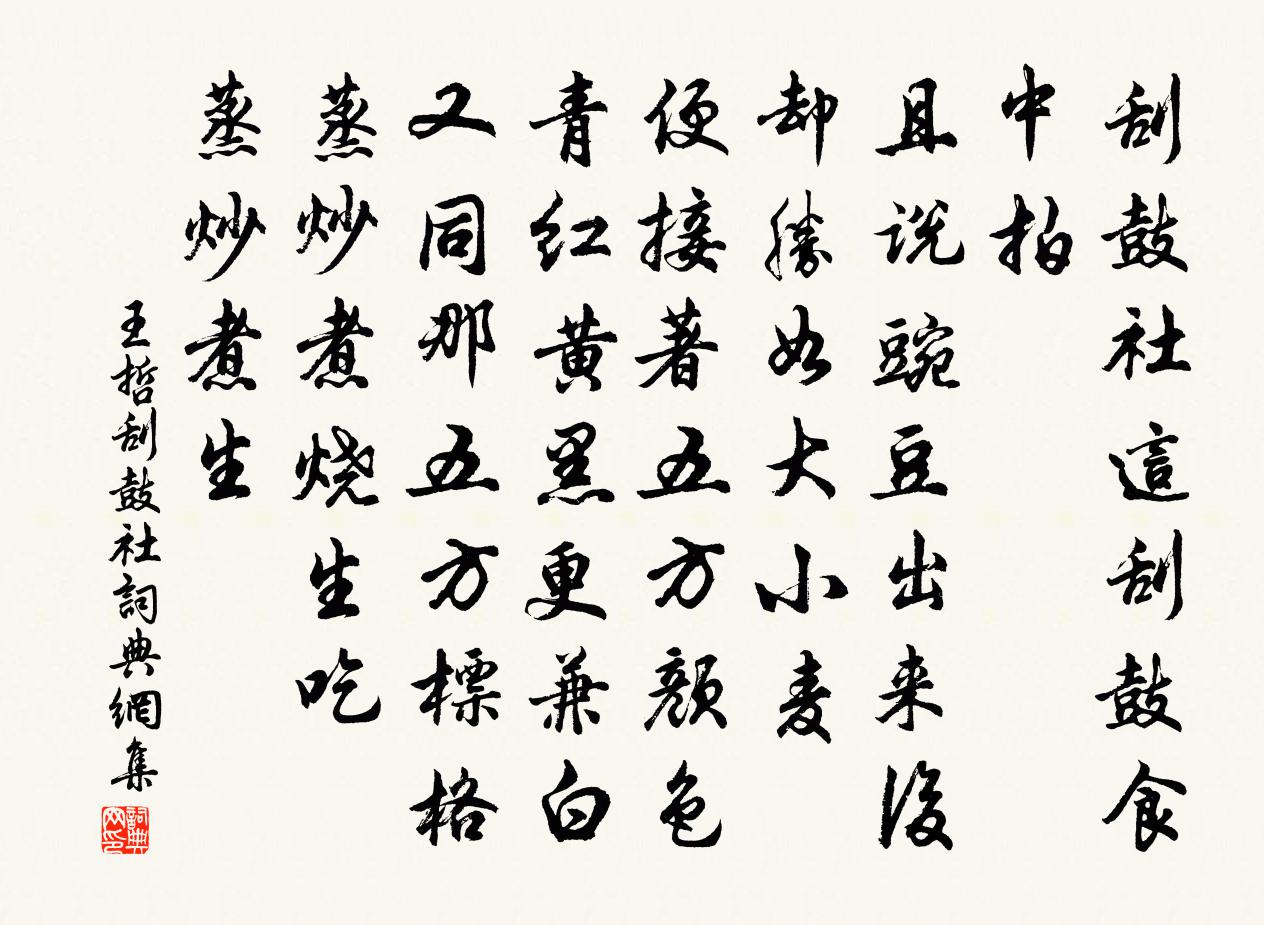 刮鼓社這刮鼓食
中拍
且説豌豆出来後
却勝如大小麦
便接著五方顔色
青红黄黑更兼白
又同那五方標格
蒸炒煮烧生吃
蒸炒煮生
王哲刮鼓社詞典網集
詞典网印